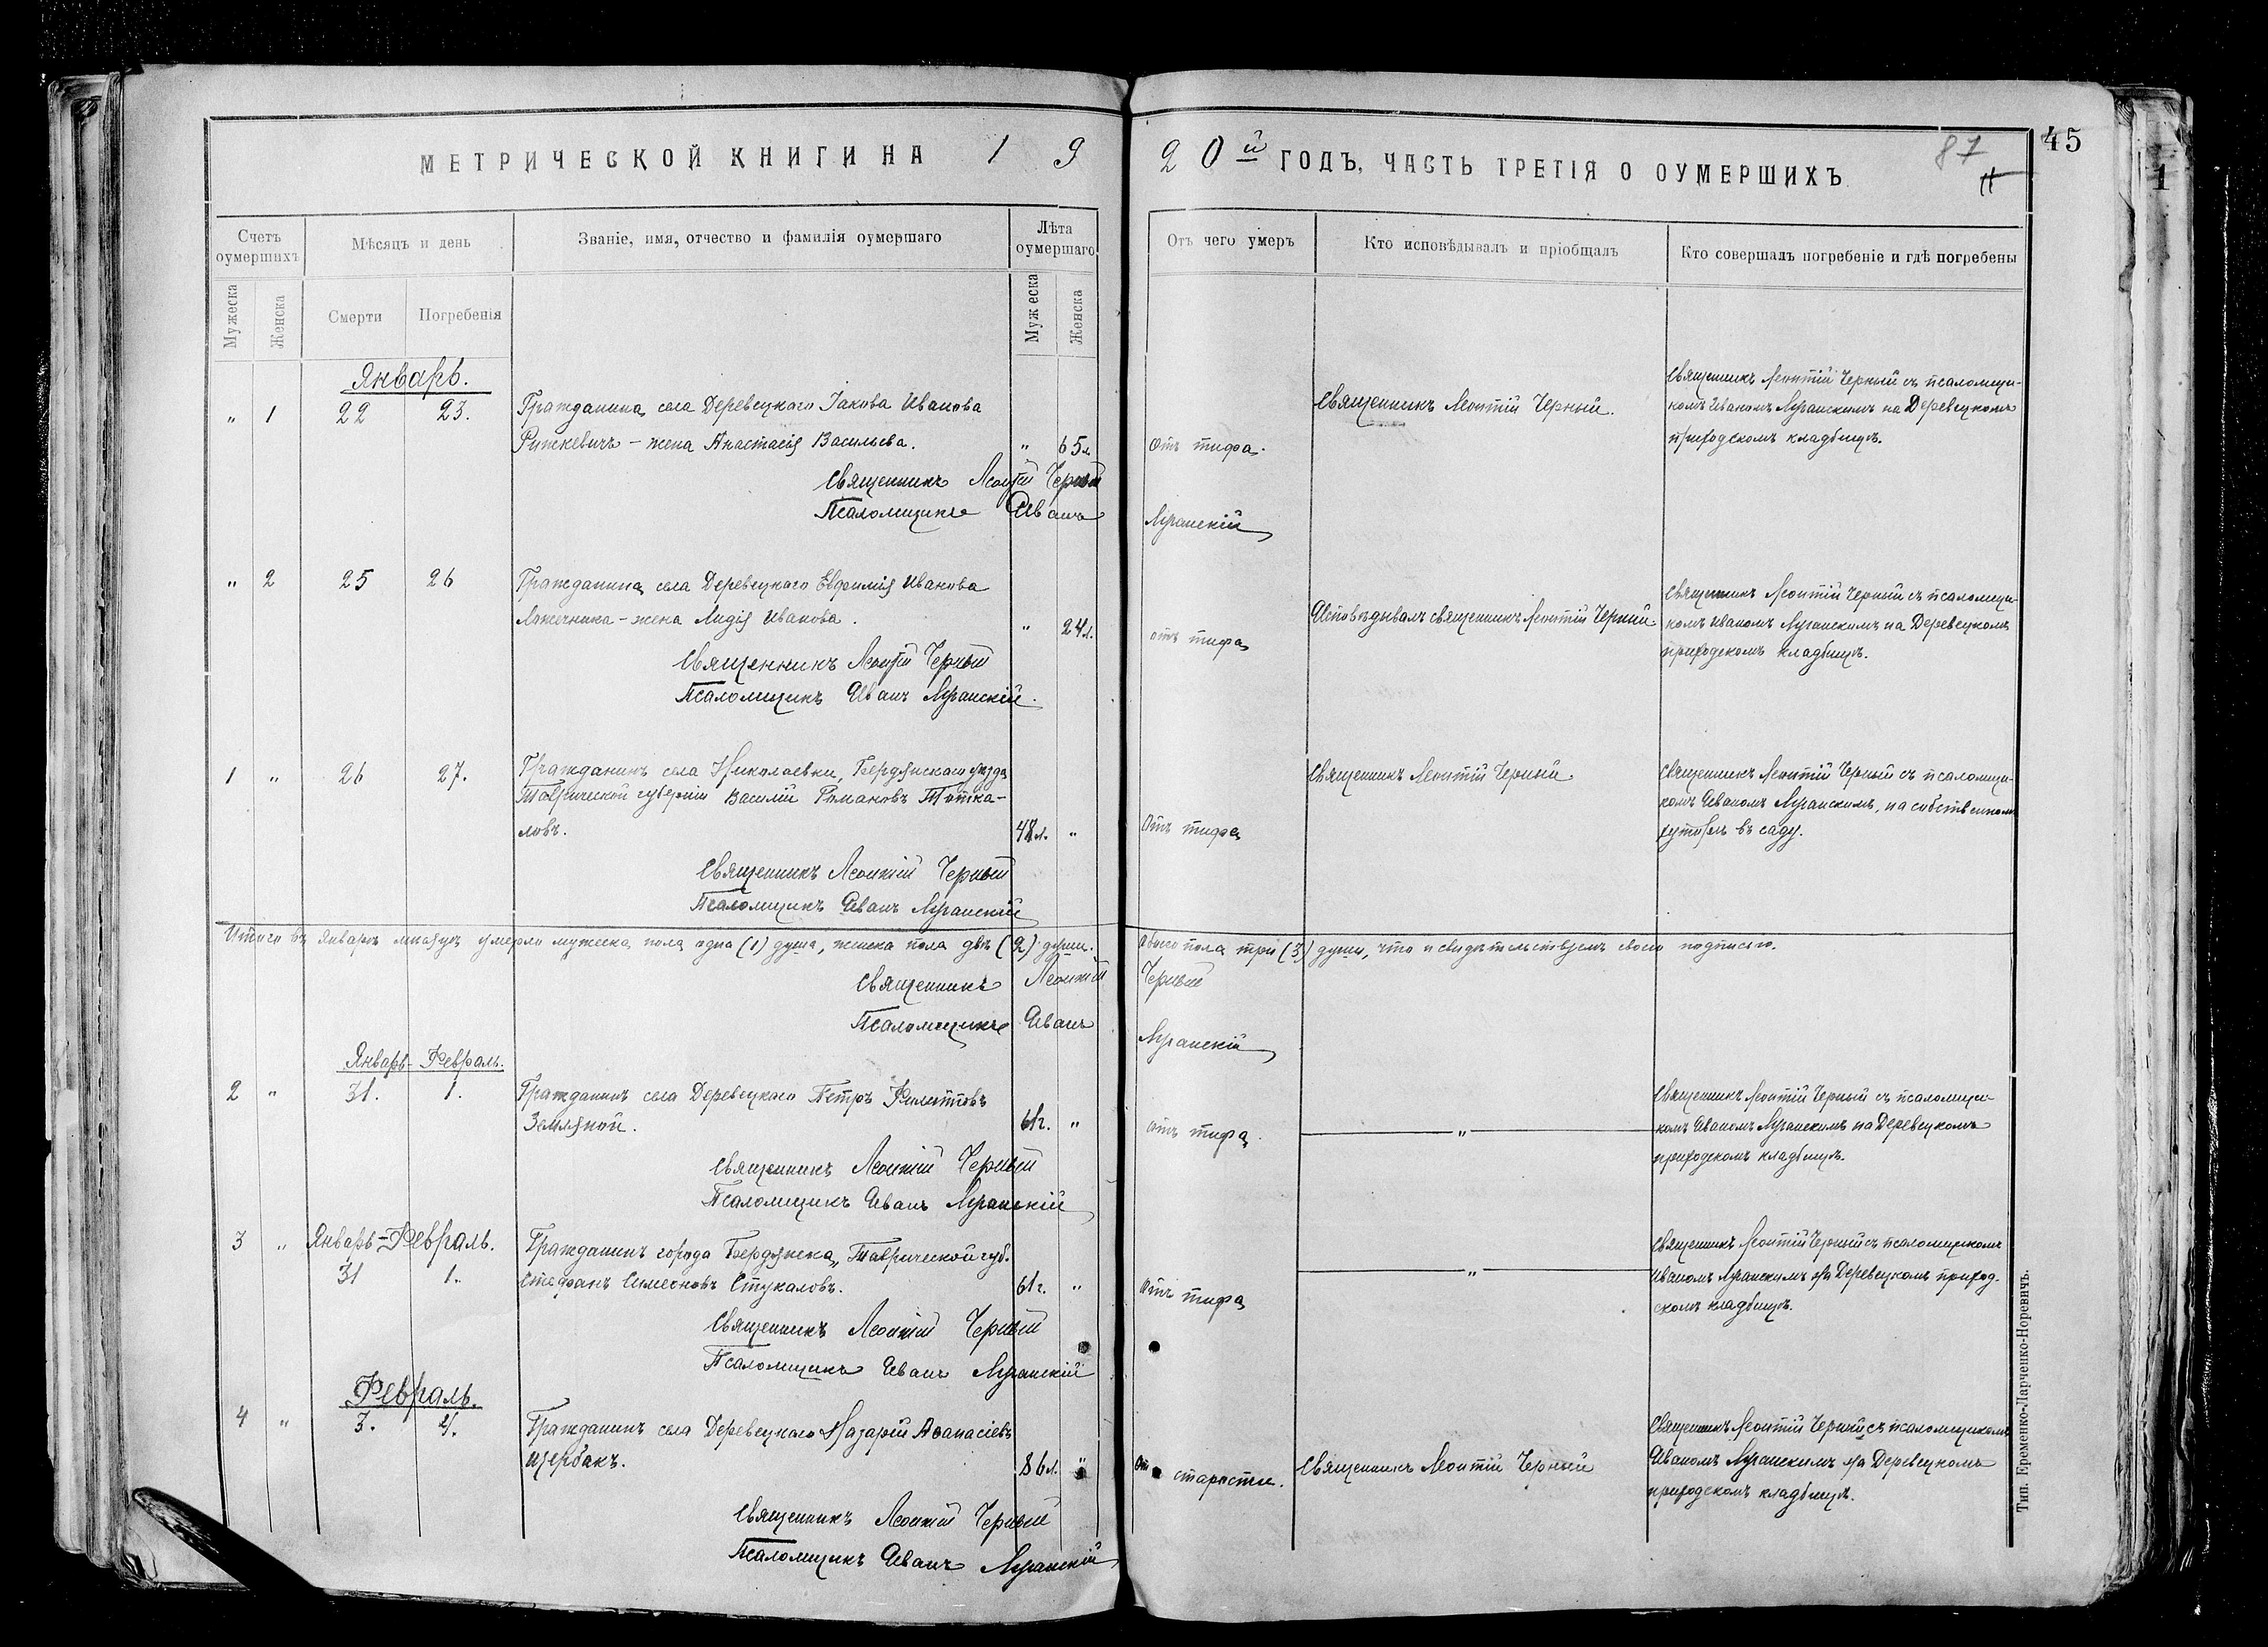 МЕТРИЧЕСКОЙ КНИГИ НА 1 9 20й ГОДЪ, ЧАСТЬ ТРЕТІЯ О ОУМЕРШИХЪ
87
45
1
Счетъ оумершихъ
Мѣсяцъ и день
Званіе, имя, отчество и фамилія оумершаго
Лѣта оумершаго
Отъ чего умеръ
Кто исповѣдывалъ и пріобщалъ
Кто совершалъ погребеніе и гдѣ погребены
Мужеска
Женска
Смерти
Погребенія
Мужеска
Женска
Январь.
„ 1 22 23.
Гражданина села Деревецкаго Іакова Иванова
жена Анастасія Васильева.
„ 65л.
Отъ тифа.
Священникъ Леонтій Черный.
Священникъ Леонтій Черный съ псаломщи-
комъ Иваномъ Луганскимъ на Деревецкомъ
приходскомъ кладбищѣ.
Священникъ Леонтій Черный
Псаломщикъ Иванъ Луганскій
„ 2 25 26
Гражданина села Деревецкаго Евфимія Иванова
жена Лидія Иванова.
„ 24л.
отъ тифа
Исповѣдывалъ священникъ Леонтій Черный
Священникъ Леонтій Черный съ псаломщи-
комъ Иваномъ Луганскимъ на Деревецкомъ
приходскомъ кладбищѣ.
Священникъ Леонтій Черный
Псаломщикъ Иванъ Луганскій.
1 „ 26 27.
Гражданинъ села Николаевки, Бердянскаго уѣзда
Таврической губерніи Василій Романовъ
ловъ.
48л. „
Отъ тифа
Священникъ Леонтій Черный
Священникъ Леонтій Черный съ псаломщи-
комъ Иваномъ Луганскимъ, на собственномъ
хуторѣ въ саду.
Священникъ Леонтій Черный
Псаломщикъ Иванъ Луганскій
Итого въ январѣ мѣсяцѣ умерло мужеска пола одна (1) душа, женска пола двѣ (2) души. обоего пола три (3) души, что и свидѣтельствуемъ своею подписью.
Священникъ Леонтій Черный
Псаломщикъ Иванъ Луганскій
Январь-Февраль.
2 „ 31. 1.
Гражданинъ села Деревецкаго Петръ Филипповъ
Земляной.
61г. „
отъ тифа.
„
Священникъ Леонтій Черный съ псаломщи-
комъ Иваномъ Луганскимъ на Деревецкомъ
приходскомъ кладбищѣ.
Священникъ Леонтій Черный
Псаломщикъ Иванъ Луганскій
Январь-Февраль.
3 „ 31 1.
Гражданинъ города Бердянска, Таврической губ.
Стефанъ Симеоновъ Стукаловъ.
61г. „
Отъ тифа
„
Священникъ Леонтій Черный съ псаломщикомъ
Иваномъ Луганскимъ на Деревецкомъ приход-
скомъ кладбищѣ.
Священникъ Леонтій Черный
Псаломщикъ Иванъ Луганскій
Февраль.
4 „ 3. 4.
Гражданинъ села Деревецкаго Назарій Аѳанасіевъ
Щербакъ.
86л. „
От старости.
Священникъ Леонтій Черный
Священникъ Леонтій Черный съ псаломщикомъ
Иваномъ Луганскимъ на Деревецкомъ
приходскомъ кладбищѣ.
Священникъ Леонтій Черный
Псаломщикъ Иванъ Луганскій
Тип. Еременко-Ларченко-Норевичъ.